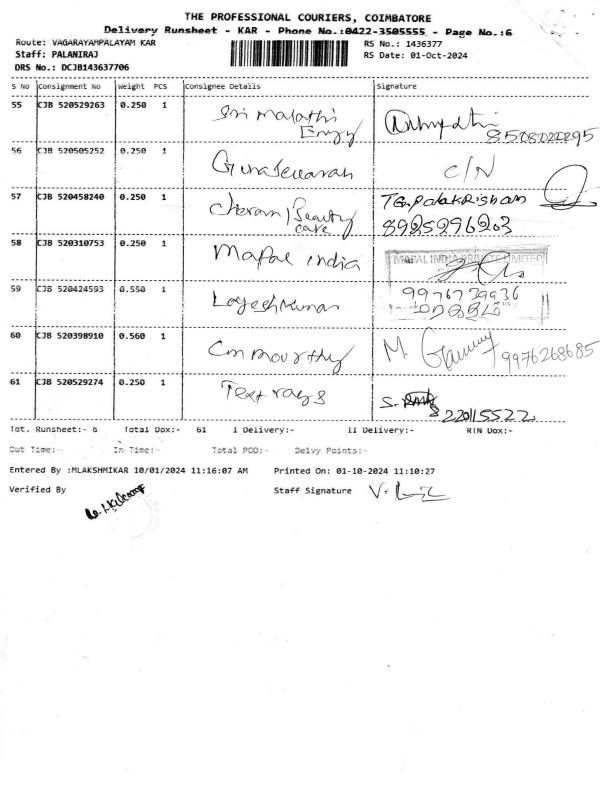 THE PROFESSIONAL COURIERS, COIMBATORE
Delivery Runsheet - KAR - Phone No.:0422-3505555 - Page No.:6
Route: VAGARAYAMPALAYAM KAR RS No.: 1436377
Staff: PALANIRAJ RS Date: 01-Oct-2024
DRS No.: DCJB143637706
S No Consignment No Weight PCS Consignee Details Signature
55 CJB 520529263 0.250 1 Sri malathi
Engg 8508020295
56 CJB 520505252 0.250 1 Gunaseelan C/N
57 CJB 520458240 0.250 1 Beauty TG.Palakrishnan
care 8925296203
58 CJB 520310753 0.250 1 Mapal india MAPAL INDIA PRIVATE LIMITED
59 CJB 520424593 0.550 1 Logeshkumar 9976739936
60 CJB 520398910 0.560 1 Cm mourthy M. 9976268685
61 CJB 520529274 0.250 1 Text rays S.
220115522
Tot. Runsheet:- 6 Total Dox:- 61 I Delivery:- II Delivery:- RTN Dox:-
Out Time:- In-Time:- Total POD:- Delvy Points:-
Entered By :MLAKSHMIKAR 10/01/2024 11:16:07 AM Printed On: 01-10-2024 11:10:27
Verified By Staff Signature